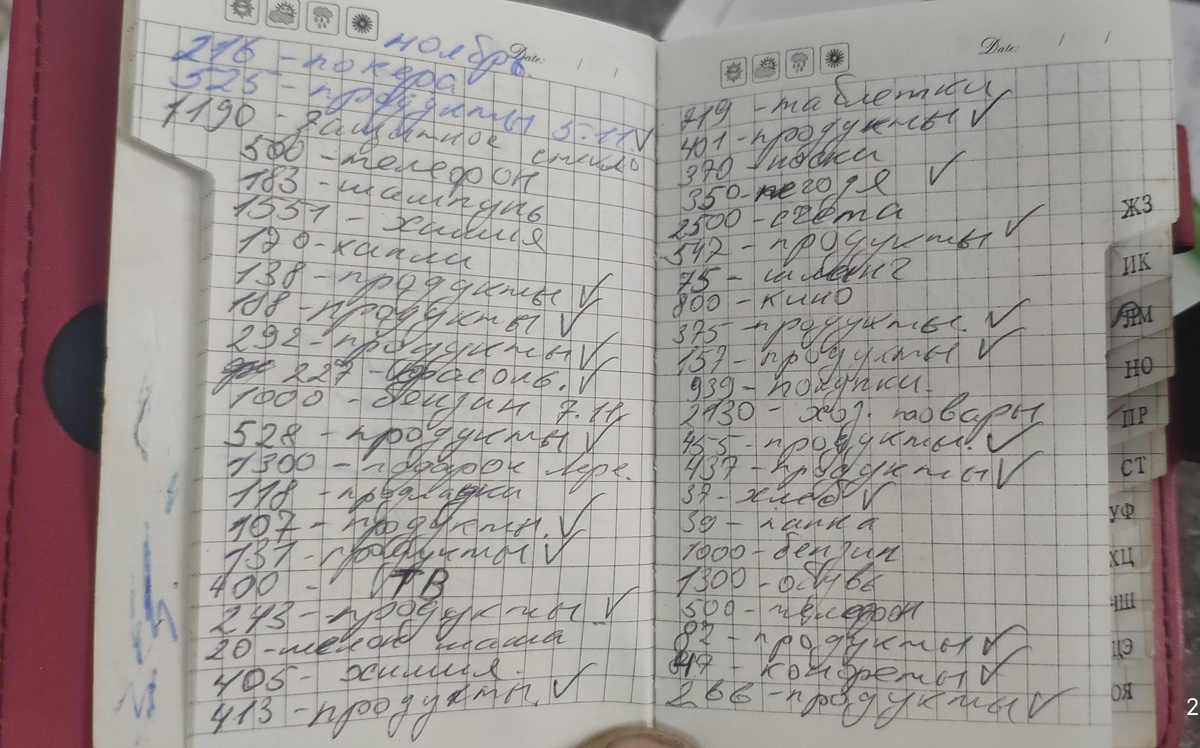 ноябрь.
Date: / /
216 - покера
525 - продукты 5.11.√
1190 - защитное стекло
500 - телефон
183 - шампунь
1551 - химия
170 - капли
138 - продукты √
188 - продукты √
292 - продукты √
227 - фасоль. √
1000 - бензин 7.11
528 - продукты √
1300 - подарок Лере.
118 - прокладки
107 - продукты. √
131 - продукты √
400 - ТВ
243 - продукты √
20 - мелок Маша
405 - химия.
413 - продукты √
Date: / /
719 - таблетки
401 - продукты √
370 - носки
350 - √
2500 - счета
547 - продукты √
75 - шланг
800 - кино
375 - продукты. √
157 - продукты √
939 - покупки.
2130 - хоз. товары
455 - продукты. √
437 - продукты √
37 - хлеб √
39 - папка
1000 - бензин
1300 - обувь
500 - телефон
82 - продукты √
конфеты √
266 - продукты √
ЖЗ
ИК
ЛМ
НО
ПР
СТ
УФ
ХЦ
ЧШ
ЦЭ
ОЯ
2